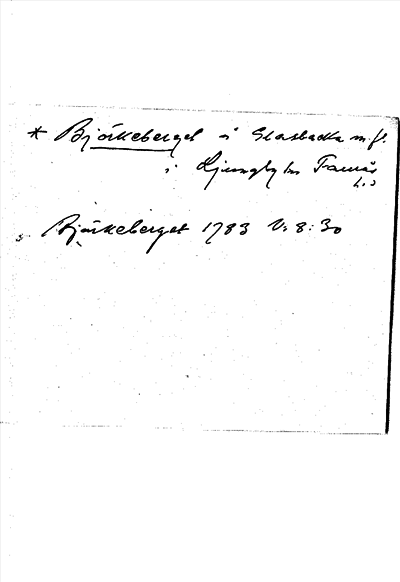 * Björkeberget i Glasbacka m.fl.
i Ljungby sn Faurås
h.
Björkeberget 1783 V: 8: 30